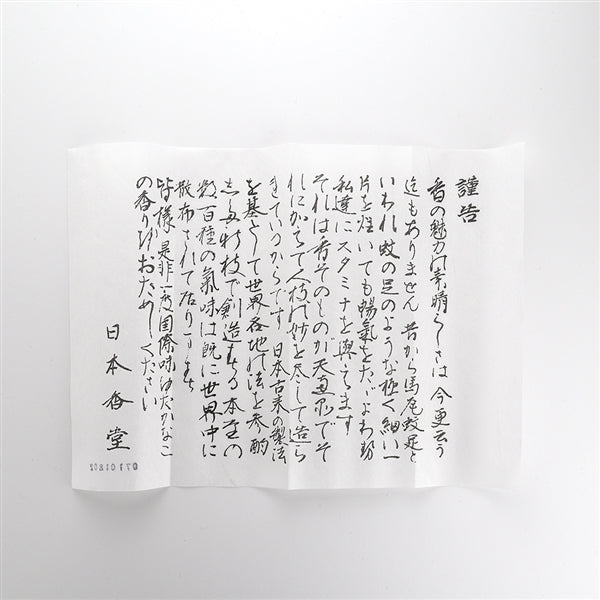 謹告
香の魅力の素晴らしさは 今更云う
迄もありません 昔から馬尾蚊足と
いわれ蚊の足のような極く細い一
片を炷いても暢氣をたゞよわせ
私達にスタミナを與えます
それは香そのものが天画でそ
れにかえて人技の妙を尽して造ら
れているからです 日本古来の製法
を基として世界各地の法を参酌
し 新技で創造せる本堂の
数百種の氣味は既に世界中に
散布されて居ります
皆様 是非一度国際味ゆたかなこ
の香りをおためしください
日本香堂